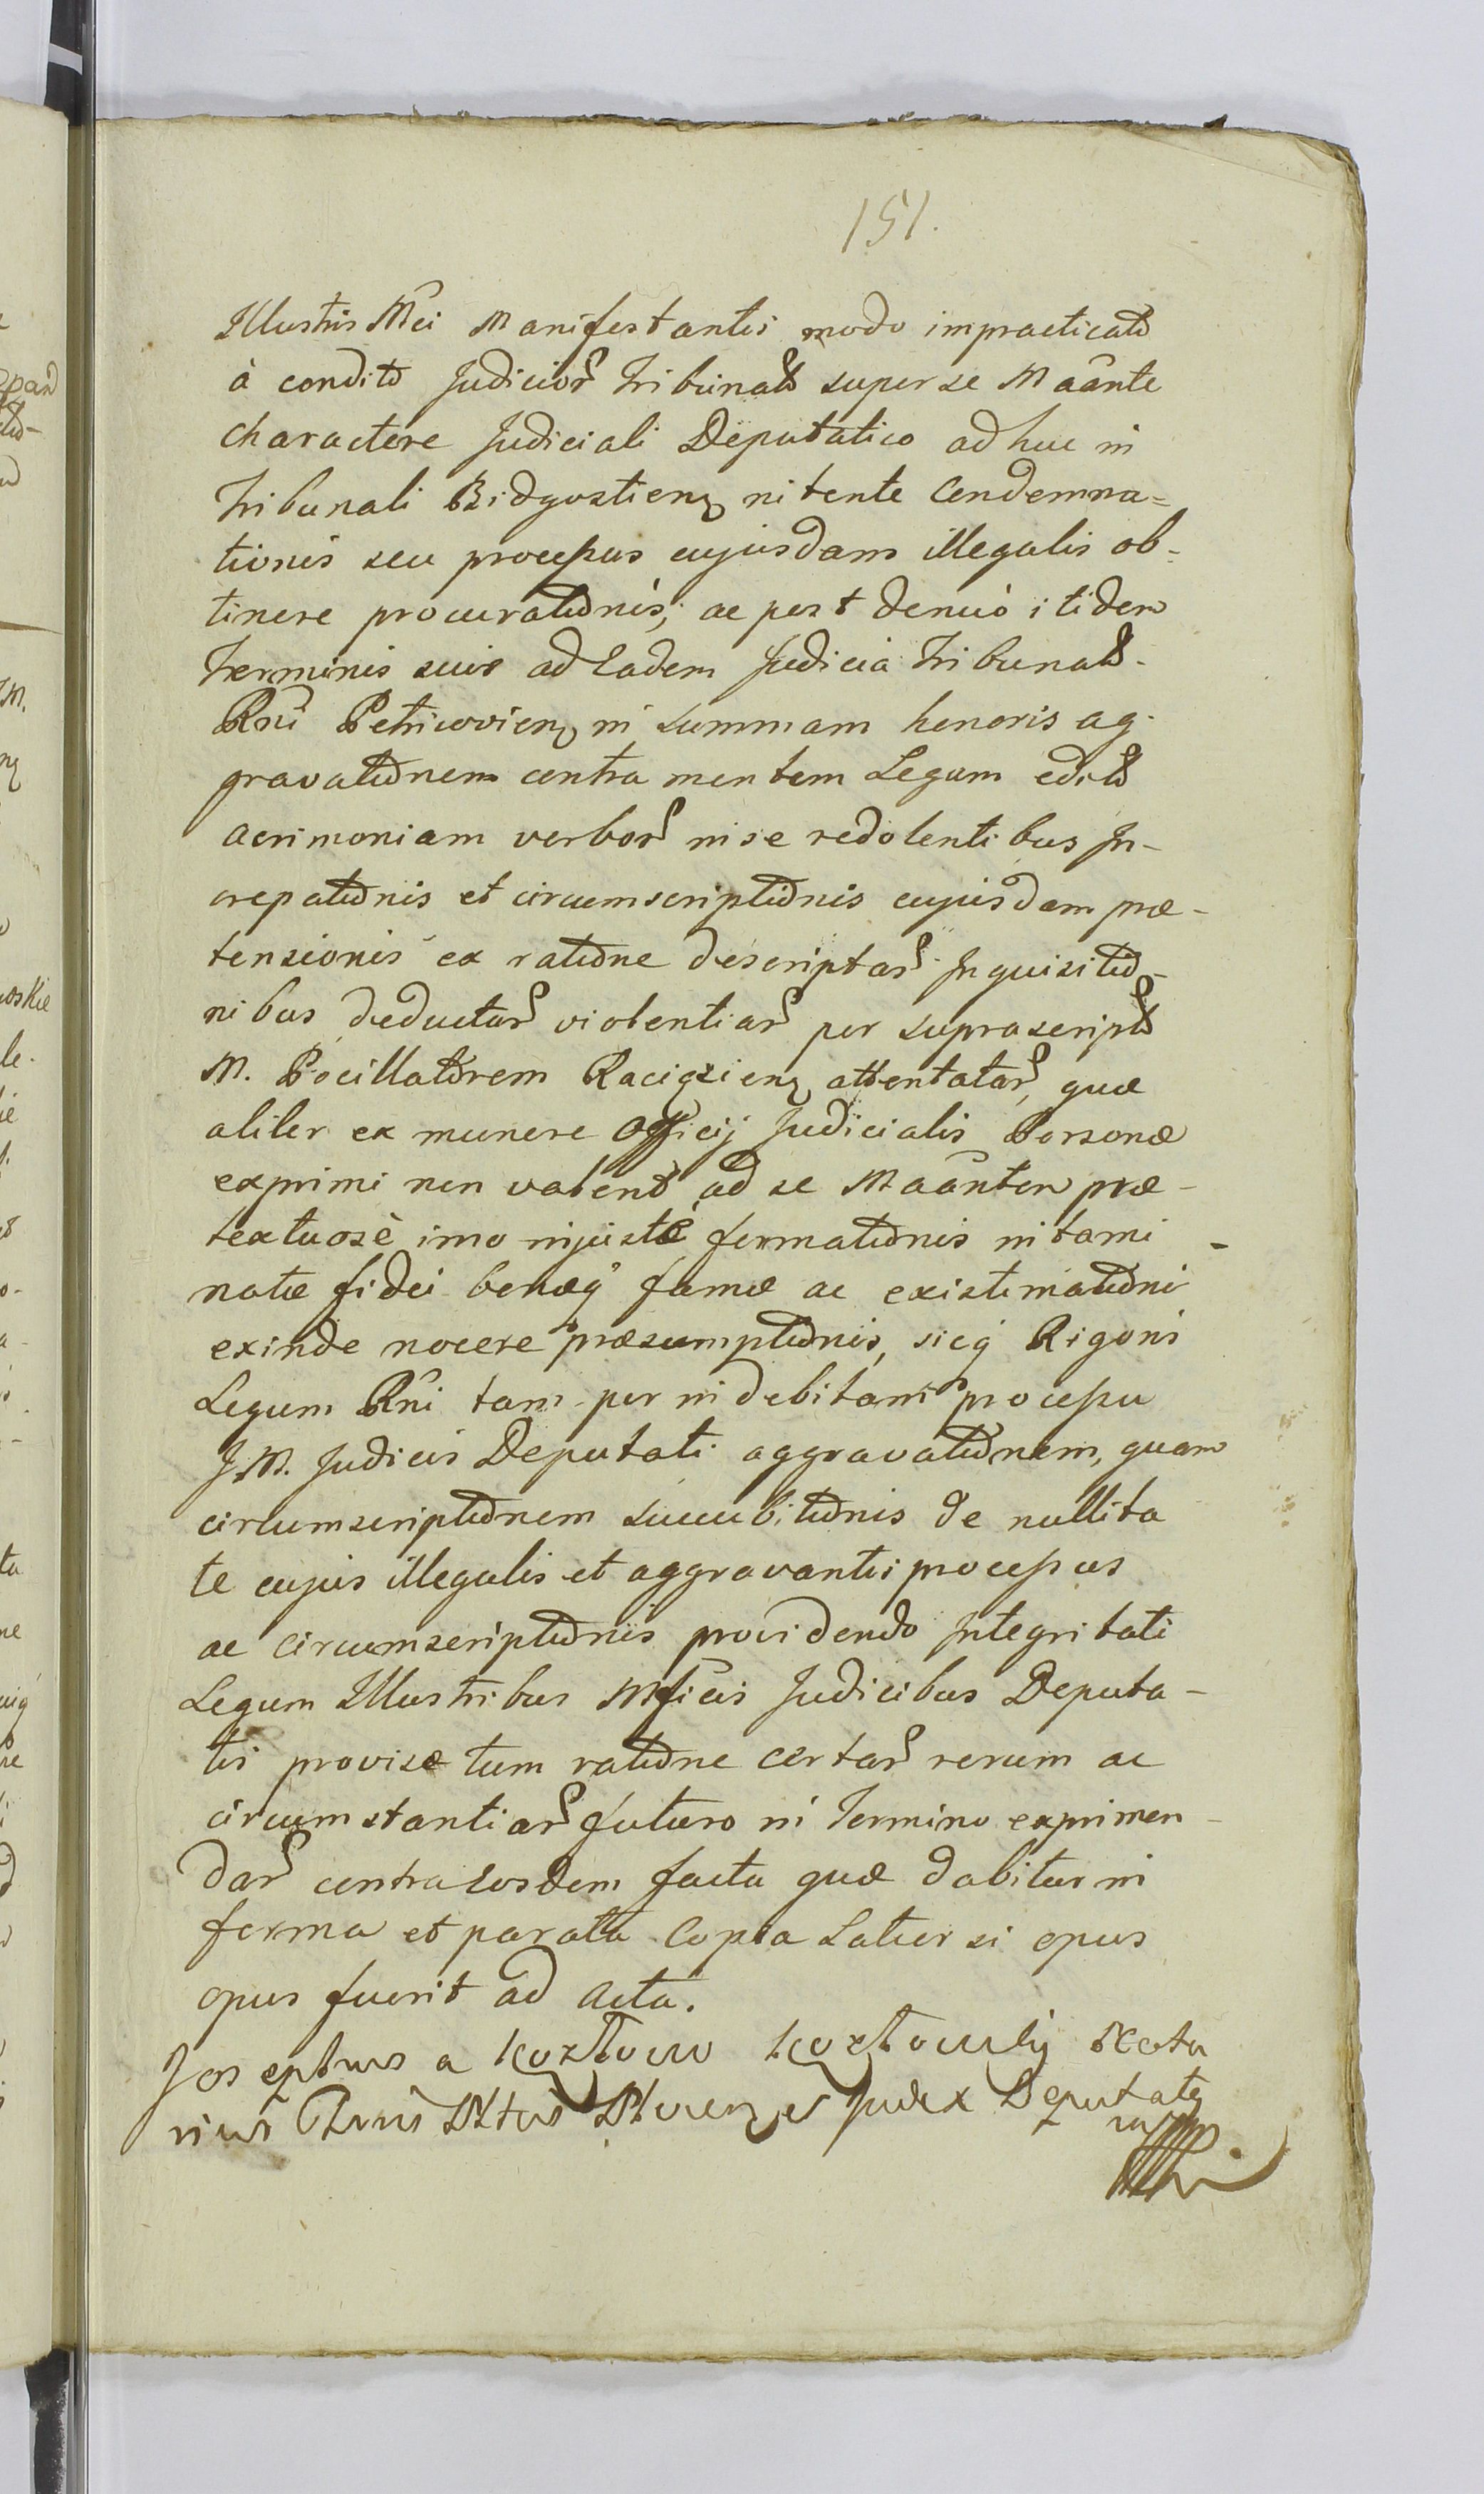 151.
Illustris Mci Manifestantis modo impracticato
à condito Judicior Tribunal super se Maante
charactere Judiciali Deputatico ad huc in
Tribunali Bidgostien nitente Condemna=
tionis seu processus cujusdam illegalis ob-
tinere procurationis, ac post denuò itidem
Terminis suis ad Eadem Judicia Tribunal
Rni Petricovien in summam honoris ag-
gravationem contra mentem Legum edit
acrimoniam verbor in se redolentibus In-
crepationis et circumscriptionis cujusdam præ-
tensionis ex ratione descriptar Inquisitio-
nibus deductar violentiar per suprascript
M. Pocillatorem Raciązien attentatar, quæ
aliter ex munere Officij Judicialis Personæ
exprimi non valent ad se Maantem præ-
textuosè imo injustè formationis intami
natæ fidei benæq famæ ac existimationi
exinde nocere præsumptionis, sicq Rigoris
Legum Rni tam per indebitam processu
J.M. Judicis Deputati aggravationem, quam
circumscriptionem succubitionis de nullita
te cujus illegalis et aggravantis processus
ac circumscriptionis providendo Integritati
Legum Illustribus Mficis Judicibus Deputa-
tis provisæ tum ratione certar rerum ac
circumstantiar futuro in Termino exprimen-
dar contra eosdem facta quæ dabitur in
forma et parata Copia Latior si opus
opus fuerit ad acta.
Josephus a Kozłowo Kozłowskij Nota
rius Judex Deputatq